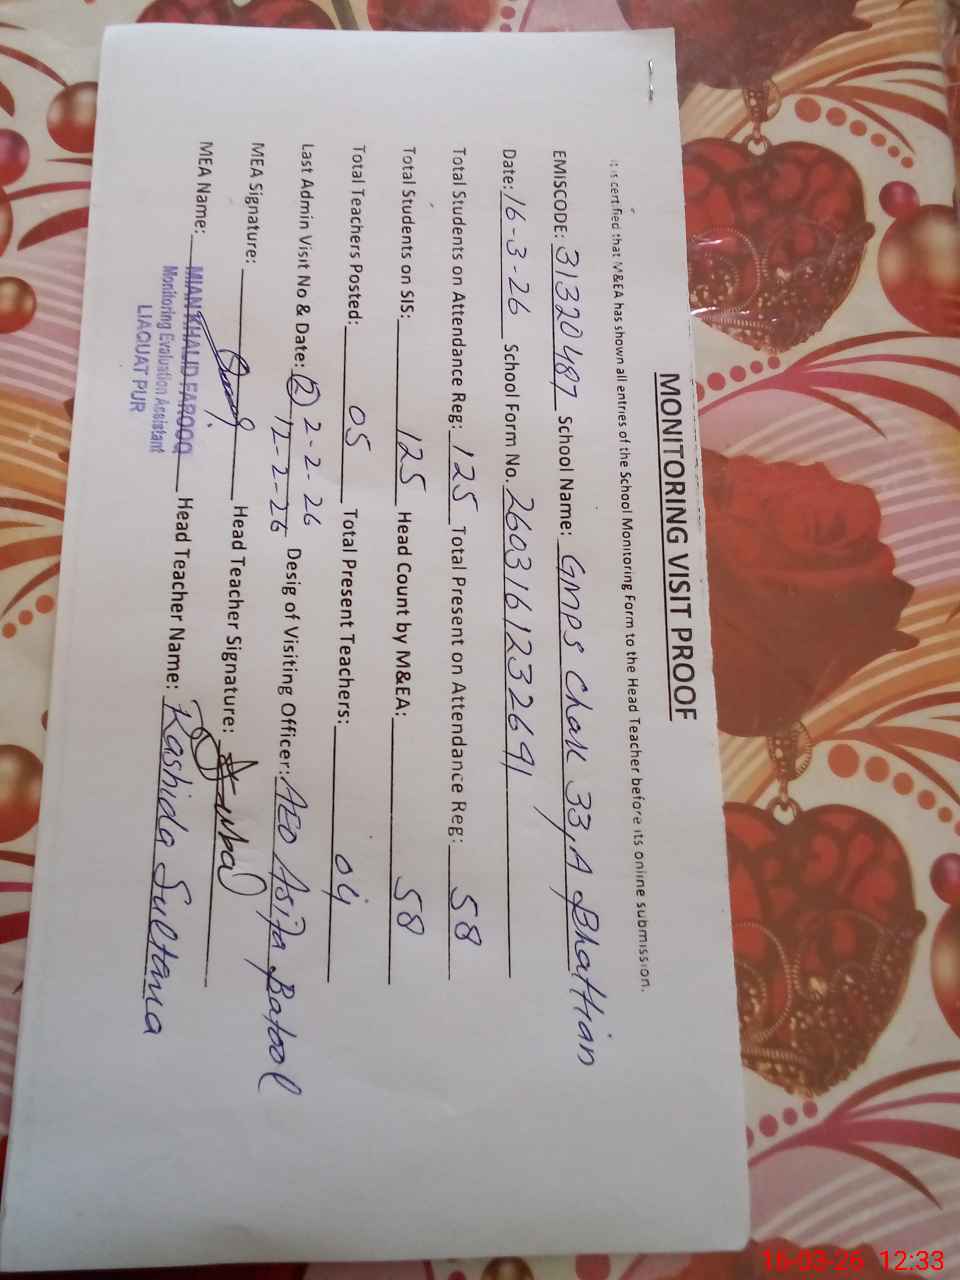 MONITORING VISIT PROOF
It is certified that M&EA has shown all entries of the School Monitoring Form to the Head Teacher before its online submission.
EMISCODE: 31320487 School Name: GMPS Chak 33,A Bhattian
Date: 16-3-26 School Form No. 260316123 2691
Total Students on Attendance Reg: 125 Total Present on Attendance Reg: 58
Total Students on SIS: 125 Head Count by M&EA: 58
Total Teachers Posted: 05 Total Present Teachers: 04
Last Admin Visit No & Date: 2 2-2-26 12-2-26 Desig of Visiting Officer: AEO Asifa Batool
MEA Signature: Head Teacher Signature:
MEA Name: MIAN KHALID FAROOQ Head Teacher Name: Rashida Sultana
Monitoring Evaluation Assistant
LIAQUAT PUR
16-03-26 12:33